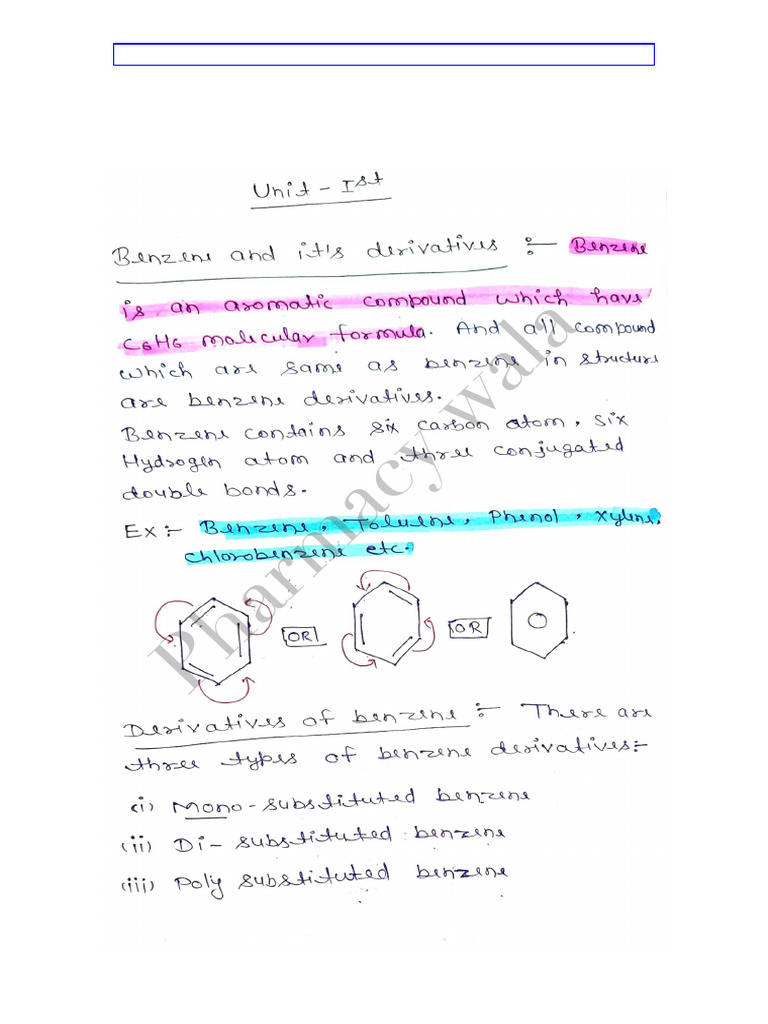 Unit - Ist
Benzene and it's derivatives :- Benzene
is an aromatic compound which have
C6H6 molecular formula. And all compound
which are same as benzene in structure
are benzene derivatives.
Benzene contains six carbon atom, six
Hydrogen atom and three conjugated
double bonds.
Ex :- Benzene, Toluene, Phenol, xylene,
chlorobenzene etc.
OR OR
Pharmacy wala
Derivatives of benzene :- There are
three types of benzene derivatives:-
(i) Mono-substituted benzene
(ii) Di- substituted benzene
(iii) Poly substituted benzene